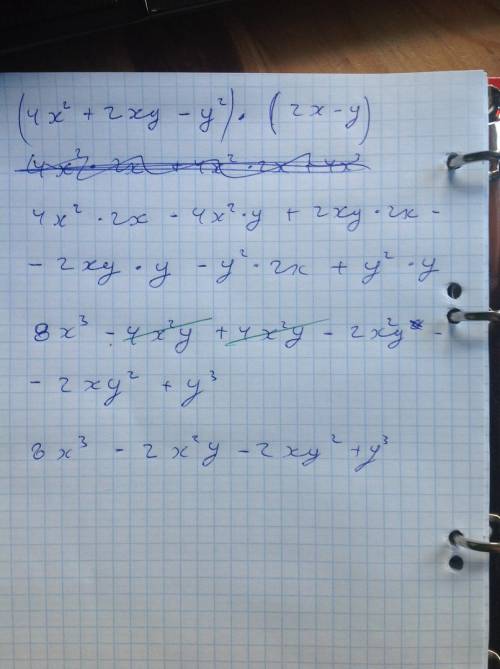 (4x² + 2xy - y²) · (2x - y)
4x² · 2x - 4x² · y + 2xy · 2x -
- 2xy · y - y² · 2x + y² · y
8x³ - 4x²y + 4x²y - 2x²y -
- 2xy² + y³
8x³ - 2x²y - 2xy² + y³